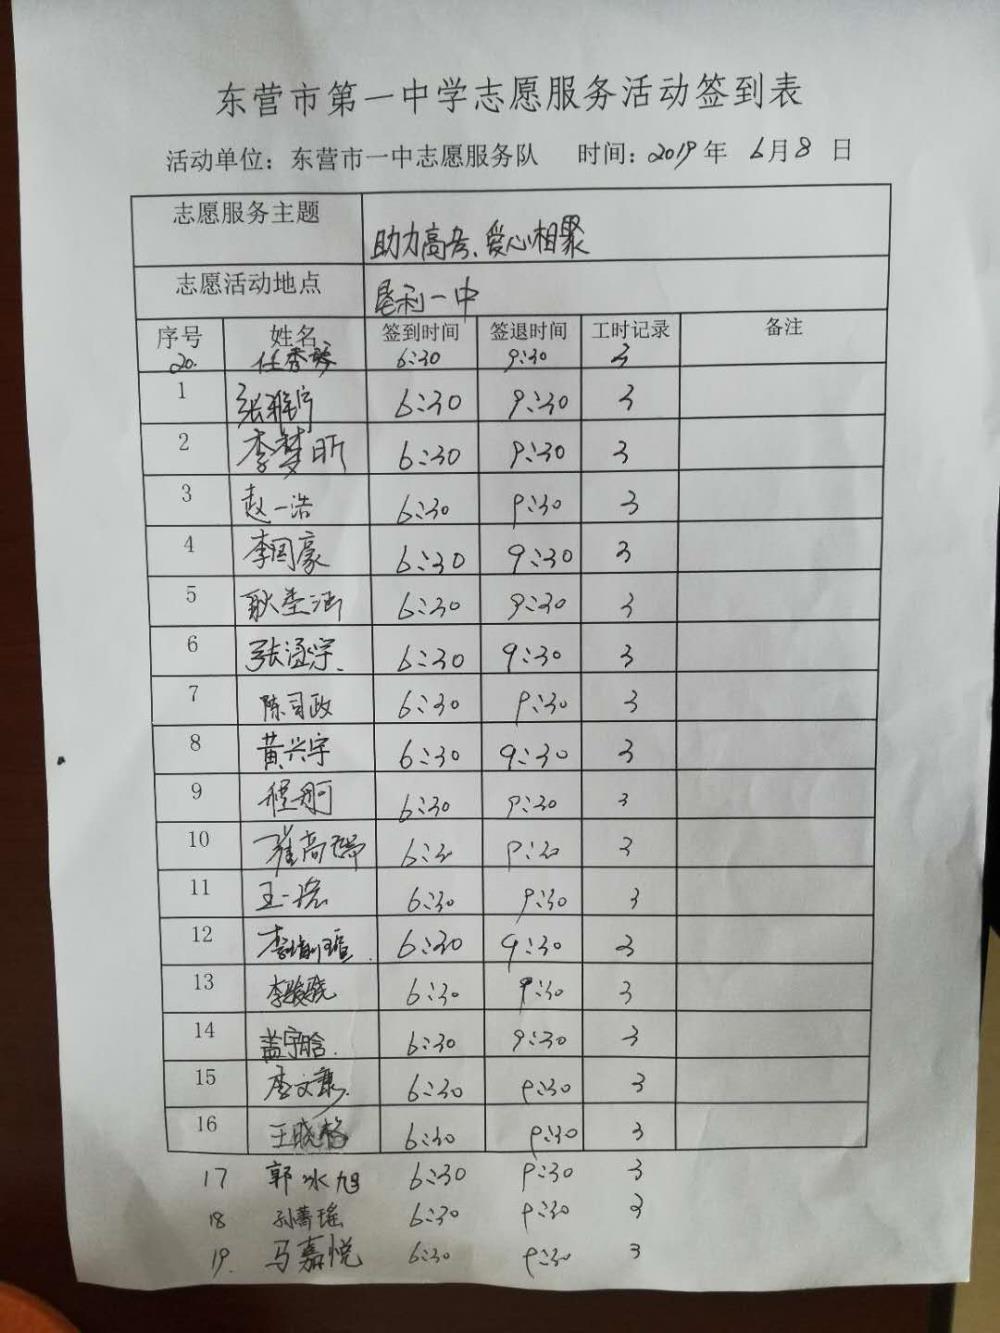 东营市第一中学志愿服务活动签到表
活动单位：东营市一中志愿服务队 时间：2019年 6月8 日
志愿服务主题 助力高考、爱心相聚
志愿活动地点 垦利一中
序号 姓名 签到时间 签退时间 工时记录 备注
20. 任秀琴 6:30 9:30 3
1 张雅宁 6:30 9:30 3
2 李梦昕 6:30 9:30 3
3 赵一浩 6:30 9:30 3
4 李国豪 6:30 9:30 3
5 6:30 9:30 3
6 张涵宇. 6:30 9:30 3
7 陈司政 6:30 9:30 3
8 黄兴宇 6:30 9:30 3
9 6:30 9:30 3
10 崔高瑞 6:30 9:30 3
11 6:30 9:30 3
12 6:30 9:30 3
13 李骏骁 6:30 9:30 3
14 盖宇晗. 6:30 9:30 3
15 6:30 9:30 3
16 王晓格 6:30 9:30 3
17 郭冰旭 6:30 9:30 3
18 孙菁瑶 6:30 9:30 3
19. 马嘉悦 6:30 9:30 3